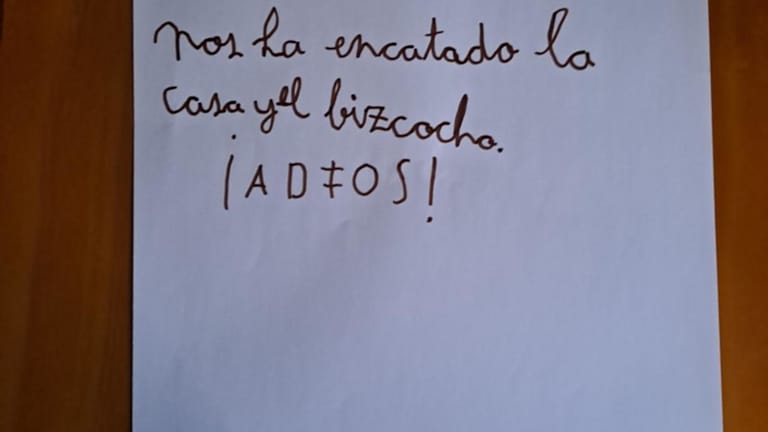 nos ha encatado la
casa y el bizcocho.
¡ADIOS!